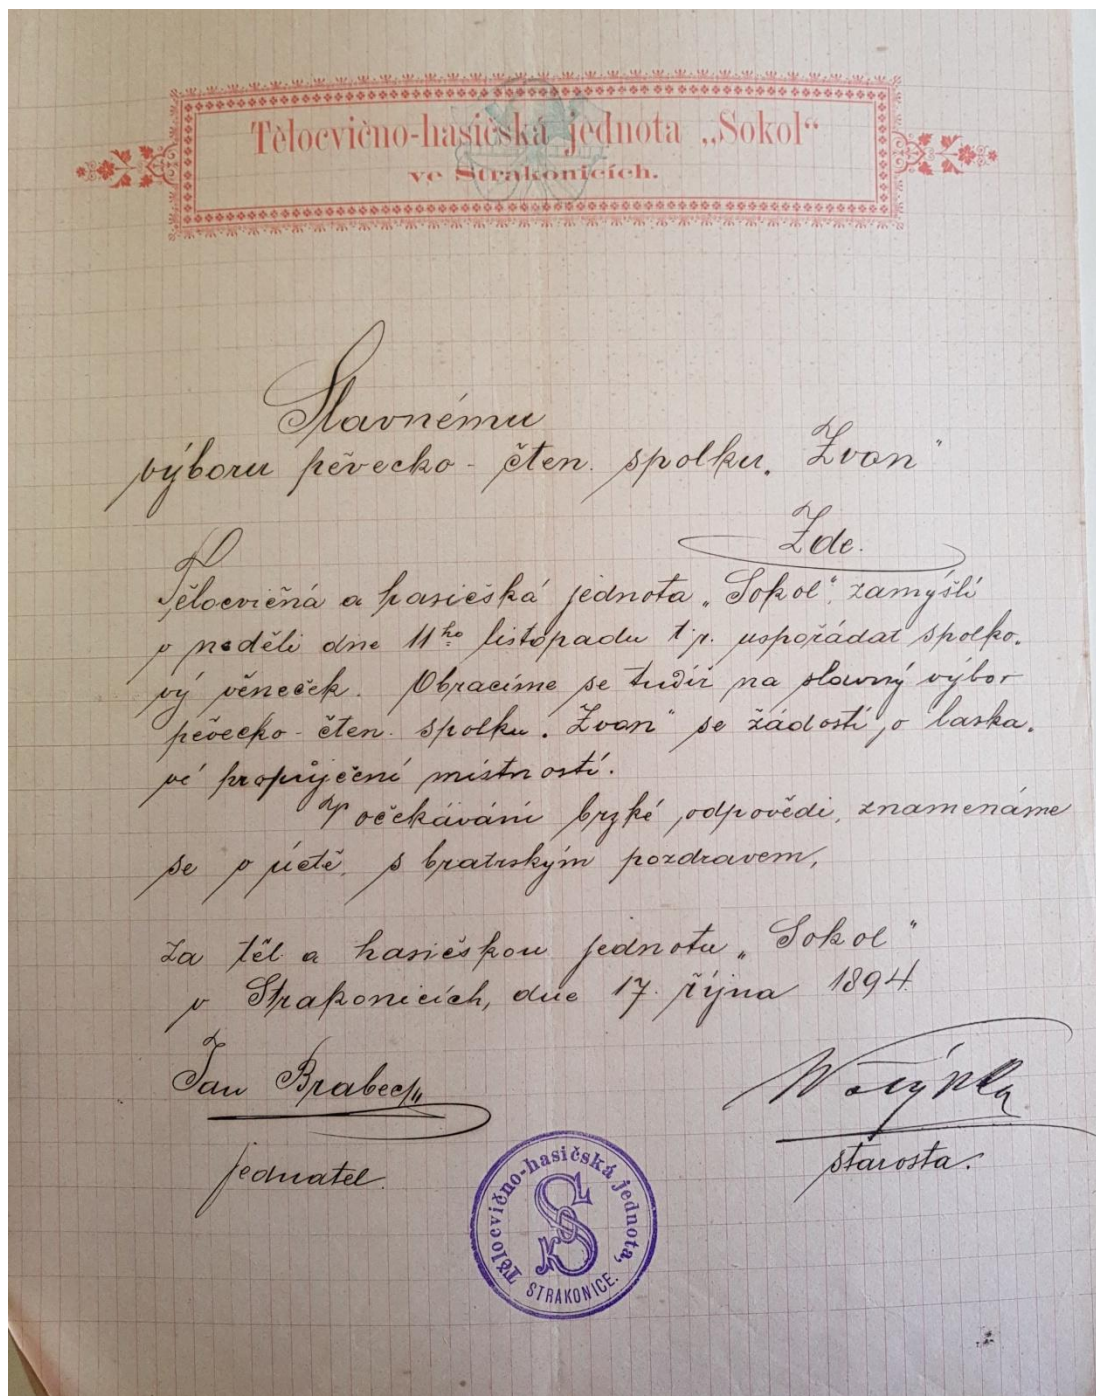 Tělocvično-hasičská jednota „Sokol“
ve Strakonicích.
Slavnému
výboru pěvecko - čten. spolku „Zvon“
Zde.
Tělocvičná a hasičská jednota „Sokol“ zamýšlí
v neděli dne 11ho listopadu t.r. uspořádat spolko-
vý věneček. Obracíme se tudíž na slavný výbor
pěvecko - čten. spolku „Zvon“ se žádostí, o laska-
vé propůjčení místností.
V očekávání brzké odpovědi, znamenáme
se v úctě, s bratrským pozdravem,
za těl. a hasičskou jednotu „Sokol“
v Strakonicích, dne 17. října 1894.
Jan Brabec
jednatel.
starosta.
Tělocvično-hasičská jednota,
SK
STRAKONICE.